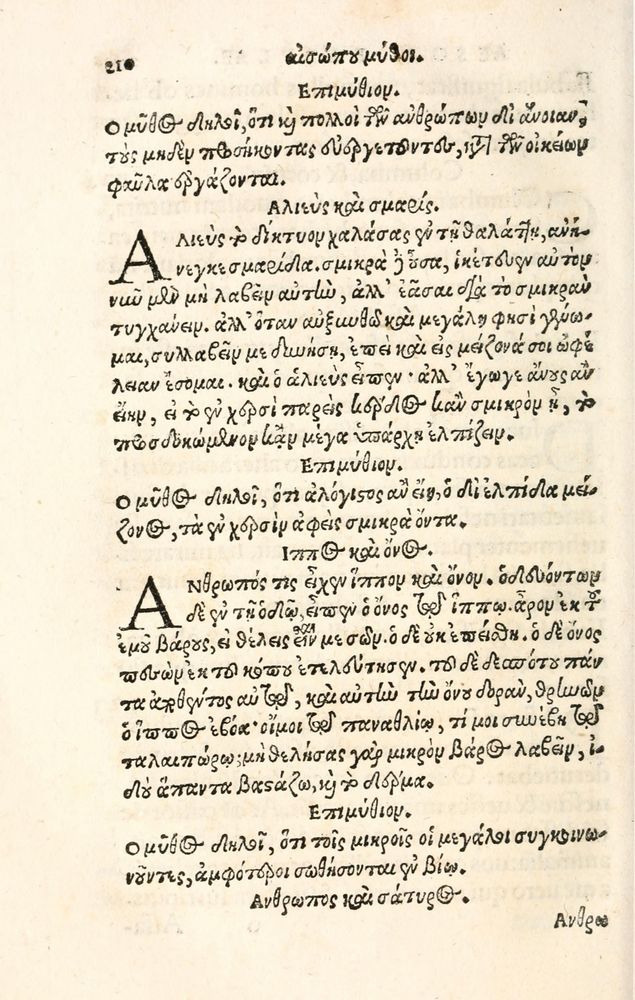 210 αἰσώπου μῦθοι.
Ἐπιμύθιον.
Ο μῦθος δηλοῖ, ὅτι καὶ πολλοὶ τῶν ἀνθρώπων δι' ἄνοιαν,
τοὺς μηδὲν προσήκοντας εὐεργετοῦντες, κατὰ τῶν οἰκείων
φαῦλα ἐργάζονται.
Αλιεὺς καὶ σμαρίς.
ΑΛιεὺς τὸ δίκτυον χαλάσας ἐν τῇ θαλάττῃ, ἀνή-
νεγκε σμαρίδα. σμικρὰ δὲ οὖσα, ἱκέτευεν αὐτὸν
νῦν μὲν μὴ λαβεῖν αὐτὴν, ἀλλ' ἐᾶσαι διὰ τὸ σμικρὰν
τυγχάνειν. ἀλλ' ὅταν αὐξηνθῶ καὶ μεγάλη φησὶ γένω-
μαι, συλλαβεῖν με δυνήσῃ, ἐπεὶ καὶ εἰς μείζονά σοι ὠφέ
λειαν ἔσομαι. καὶ ὁ ἁλιεὺς εἶπεν· ἀλλ' ἔγωγε ἄνους ἂν
εἴην, εἰ τὸ ἐν χερσὶ παρεὶς κέρδος κἂν σμικρὸν ᾖ, τὸ
προσδοκώμενον κἂν μέγα ὑπάρχῃ ἐλπίζειν.
Ἐπιμύθιον.
Ο μῦθος δηλοῖ, ὅτι ἀλόγιστος ἂν εἴη, ὁ δι' ἐλπίδα μεί-
ζονος, τὰ ἐν χερσὶν ἀφεὶς σμικρὰ ὄντα.
Ιππος καὶ ὄνος.
ΑΝθρωπός τις εἶχεν ἵππον καὶ ὄνον. ὁδευόντων
δὲ ἐν τῇ ὁδῷ, εἶπεν ὁ ὄνος τῷ ἵππῳ. ἆρον ἐκ τοῦ
ἐμοῦ βάρους, εἰ θέλεις εἶναι με σῶν. ὁ δὲ οὐκ ἐπείσθη. ὁ δὲ ὄνος
πεσὼν ἐκ τοῦ κόπου ἐτελεύτησεν. τοῦ δὲ δεσπότου πάν
τα ἐπιθέντος αὐτῷ, καὶ αὐτὴν τὴν ὄνου δορὰν, θρηνῶν
ὁ ἵππος ἐβόα· οἴμοι τῷ παναθλίῳ, τί μοι συνέβη τῷ
ταλαιπώρῳ; μὴ θελήσας γὰρ μικρὸν βάρος λαβεῖν, ἰ-
δοὺ ἅπαντα βαστάζω, καὶ τὸ δέρμα.
Ἐπιμύθιον.
Ο μῦθος δηλοῖ, ὅτι τοῖς μικροῖς οἱ μεγάλοι συγκοινω-
νοῦντες, ἀμφότεροι σωθήσονται ἐν βίῳ.
Ανθρωπος καὶ σάτυρος.
Ανθρω